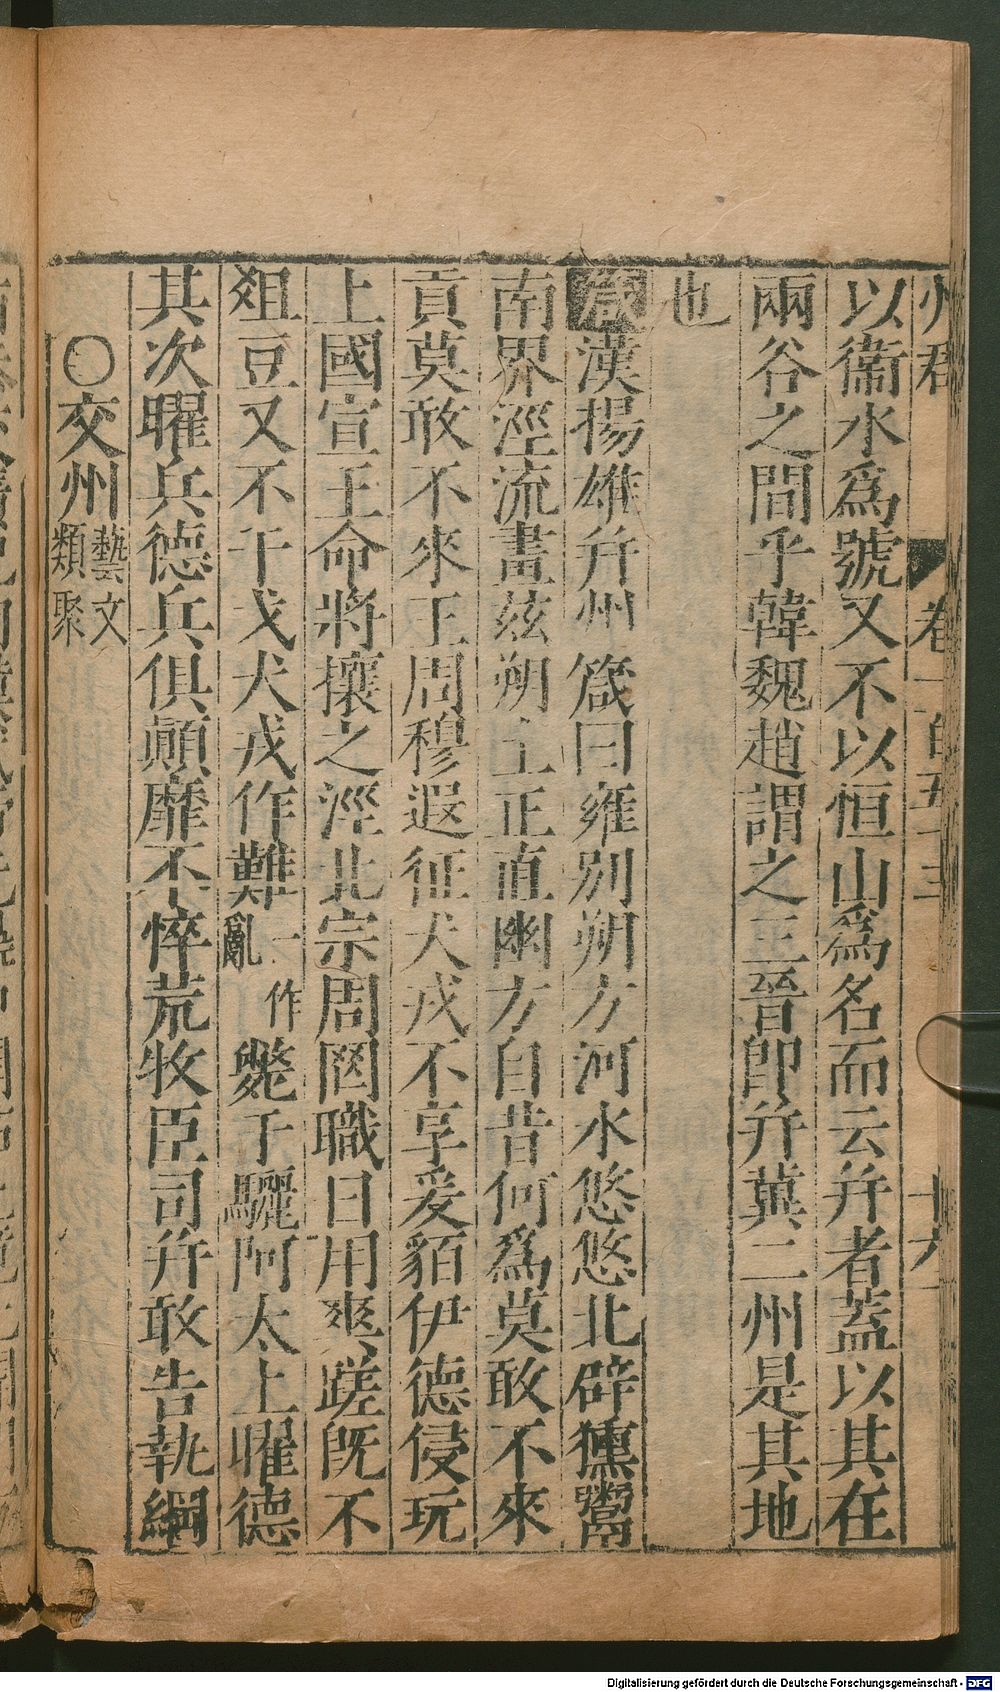 州郡 卷一百五十三 十六
以衞水爲號又不以恒山爲名而云幷者蓋以其在
兩谷之間乎韓魏趙謂之三晉卽幷冀二州是其地
也
箴漢揚雄幷州 箴曰雍別朔方河水悠悠北辟獯鬻
南界涇流畫茲朔土正直幽方自昔何爲莫敢不來
貢莫敢不來王周穆遐征犬戎不享爰貊伊德侵玩
上國宣王命將攘之涇北宗周罔職日用爽蹉旣不
俎豆又不干戈犬戎作難一作亂斃于驪阿太上曜德
其次曜兵德兵俱顚靡不悴荒牧臣司幷敢告執綱
〇交州藝文類聚
Digitalisierung gefördert durch die Deutsche Forschungsgemeinschaft - DFG